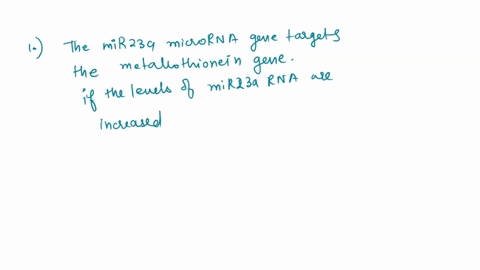 1.) The miR23a microRNA gene targets
the metallothionein gene.
if the levels of miR23a RNA are
increased